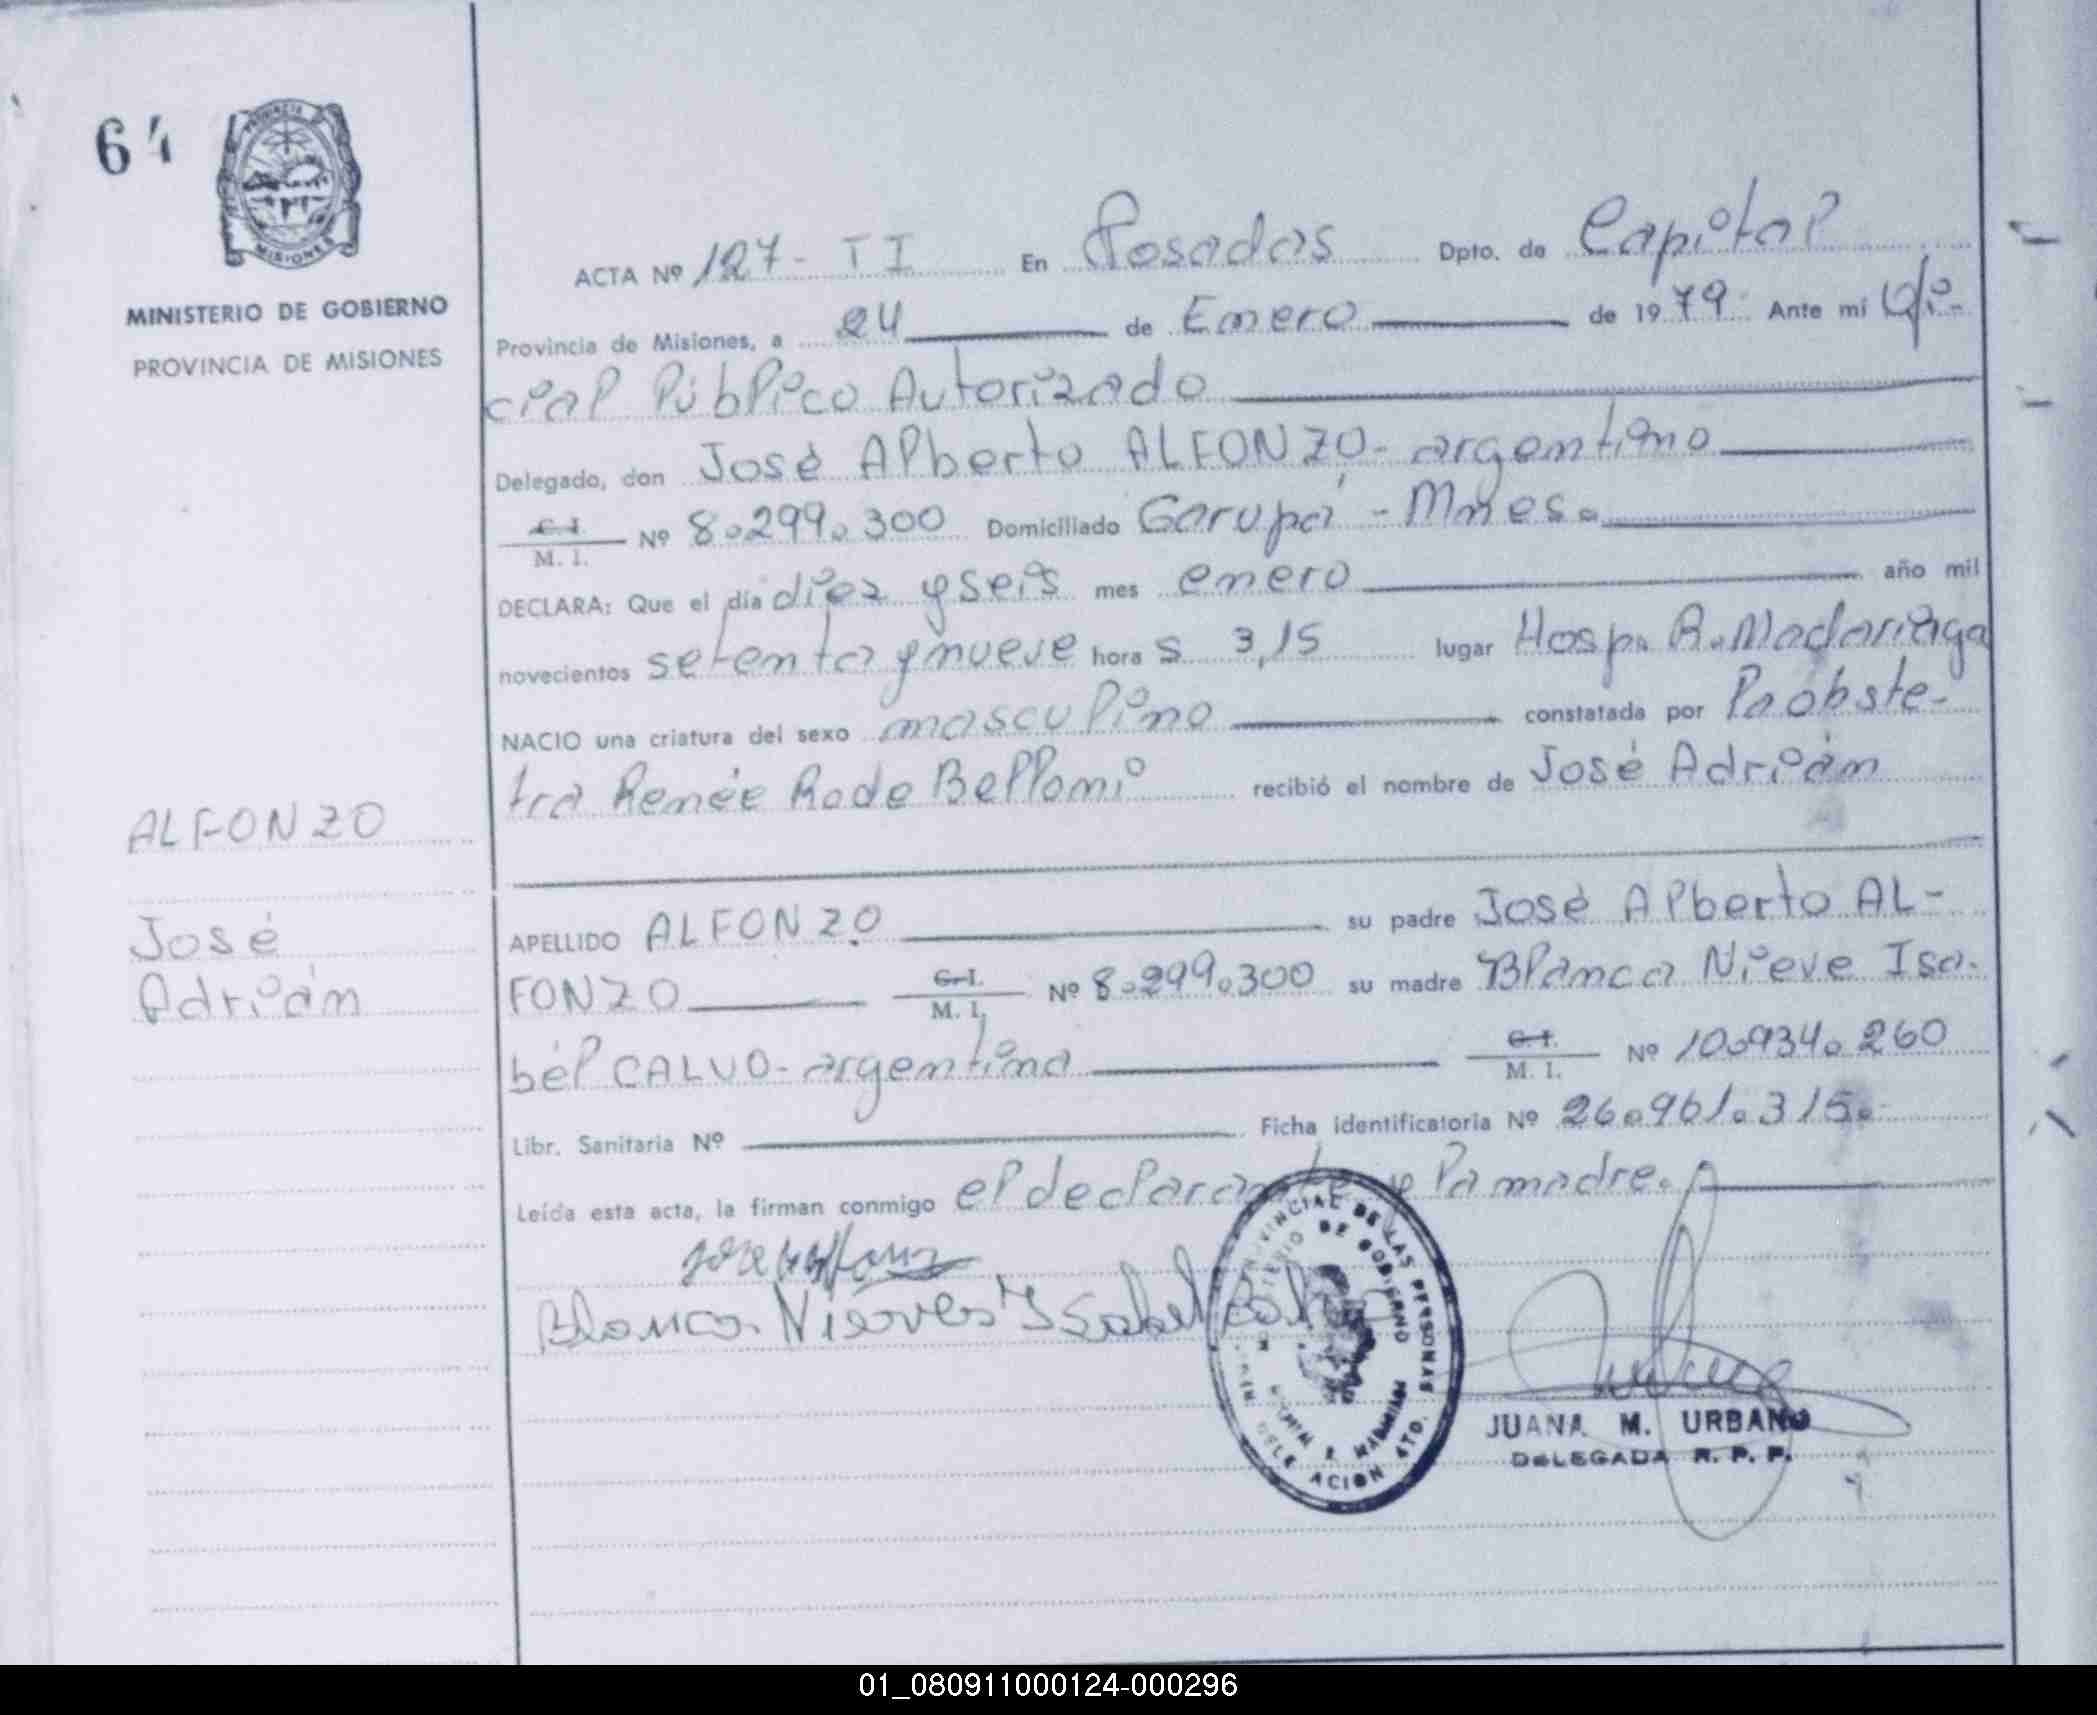 64
PROVINCIA
MISIONES
MINISTERIO DE GOBIERNO
PROVINCIA DE MISIONES
ACTA Nº 127- TI En Posadas Dpto. de Capital
Provincia de Misiones, a 24 de Enero de 1979 Ante mi Ofi-
cial Público Autorizado
Delegado, don José Alberto ALFONZO- argentino
C. I.
M. I.
Nº 8.299.300 Domiciliado Garupá - Mnes.
DECLARA: Que el día diez y seis mes enero año mil
novecientos setenta y nueve hora s 3,15 lugar Hosp. R. Madariaga
NACIO una criatura del sexo masculino constatada por la obste-
tra Renée Rode Bellomi recibió el nombre de José Adrián
ALFONZO
José
Adrián
APELLIDO ALFONZO su padre José Alberto AL-
FONZO C. I. M. I. Nº 8.299.300 su madre Blanca Nieve Isa-
bél CALVO- argentina C. I. M. I. Nº 10.934.260
Libr. Sanitaria Nº Ficha identificatoria Nº 26.961.315.-
Leída esta acta, la firman conmigo el declarante y la madre.
Blanca Nieves Isabel
DE LAS PERSONAS
DE GOBIERNO
JUANA M. URBANO
DELEGADA R. P. P.
01_080911000124-000296